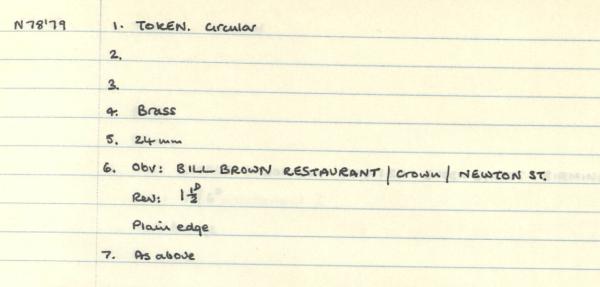 N78'79 1. TOKEN. Circular
2.
3.
4. Brass
5. 24mm
6. Obv: BILL BROWN RESTAURANT / Crown / NEWTON ST.
Rev: 1½D
Plain edge
7. As above